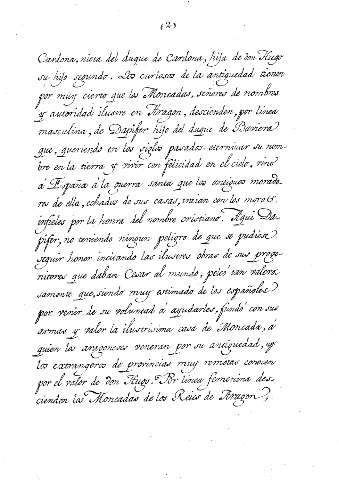 (2)
Cardona, nieta del duque de Cardona, hija de don Hugo
su hijo segundo. Los curiosos de la antiguedad tienen
por muy cierto que los Moncadas, señores de nombre
y autoridad ilustre en Aragon, descienden, por linea
masculina, de Dapifer hijo del duque de Baviera
que, queriendo en los siglos pasados eternizar su nom-
bre en la tierra y vivir con felicidad en el cielo, vino
á España á la guerra santa que los antiguos morado-
res de ella, echados de sus casas, traian con los moros
infieles por la honra del nombre cristiano. Aqui Da-
pifer, no teniendo ningun peligro de que se pudiese
seguir honor imitando las ilustres obras de sus proge-
nitores que daban Cesar al mundo, peleó tan valero-
samente que, siendo muy estimado de los españoles
por venir de su voluntad á ayudarles, fundó con sus
armas y valor la ilustrisima casa de Moncada, á
quien los aragoneses veneran por su antiguedad, y
los extrangeros de provincias muy remotas conocen
por el valor de don Hugo. Por linea femenina des-
cienden los Moncadas de los Reies de Aragon,